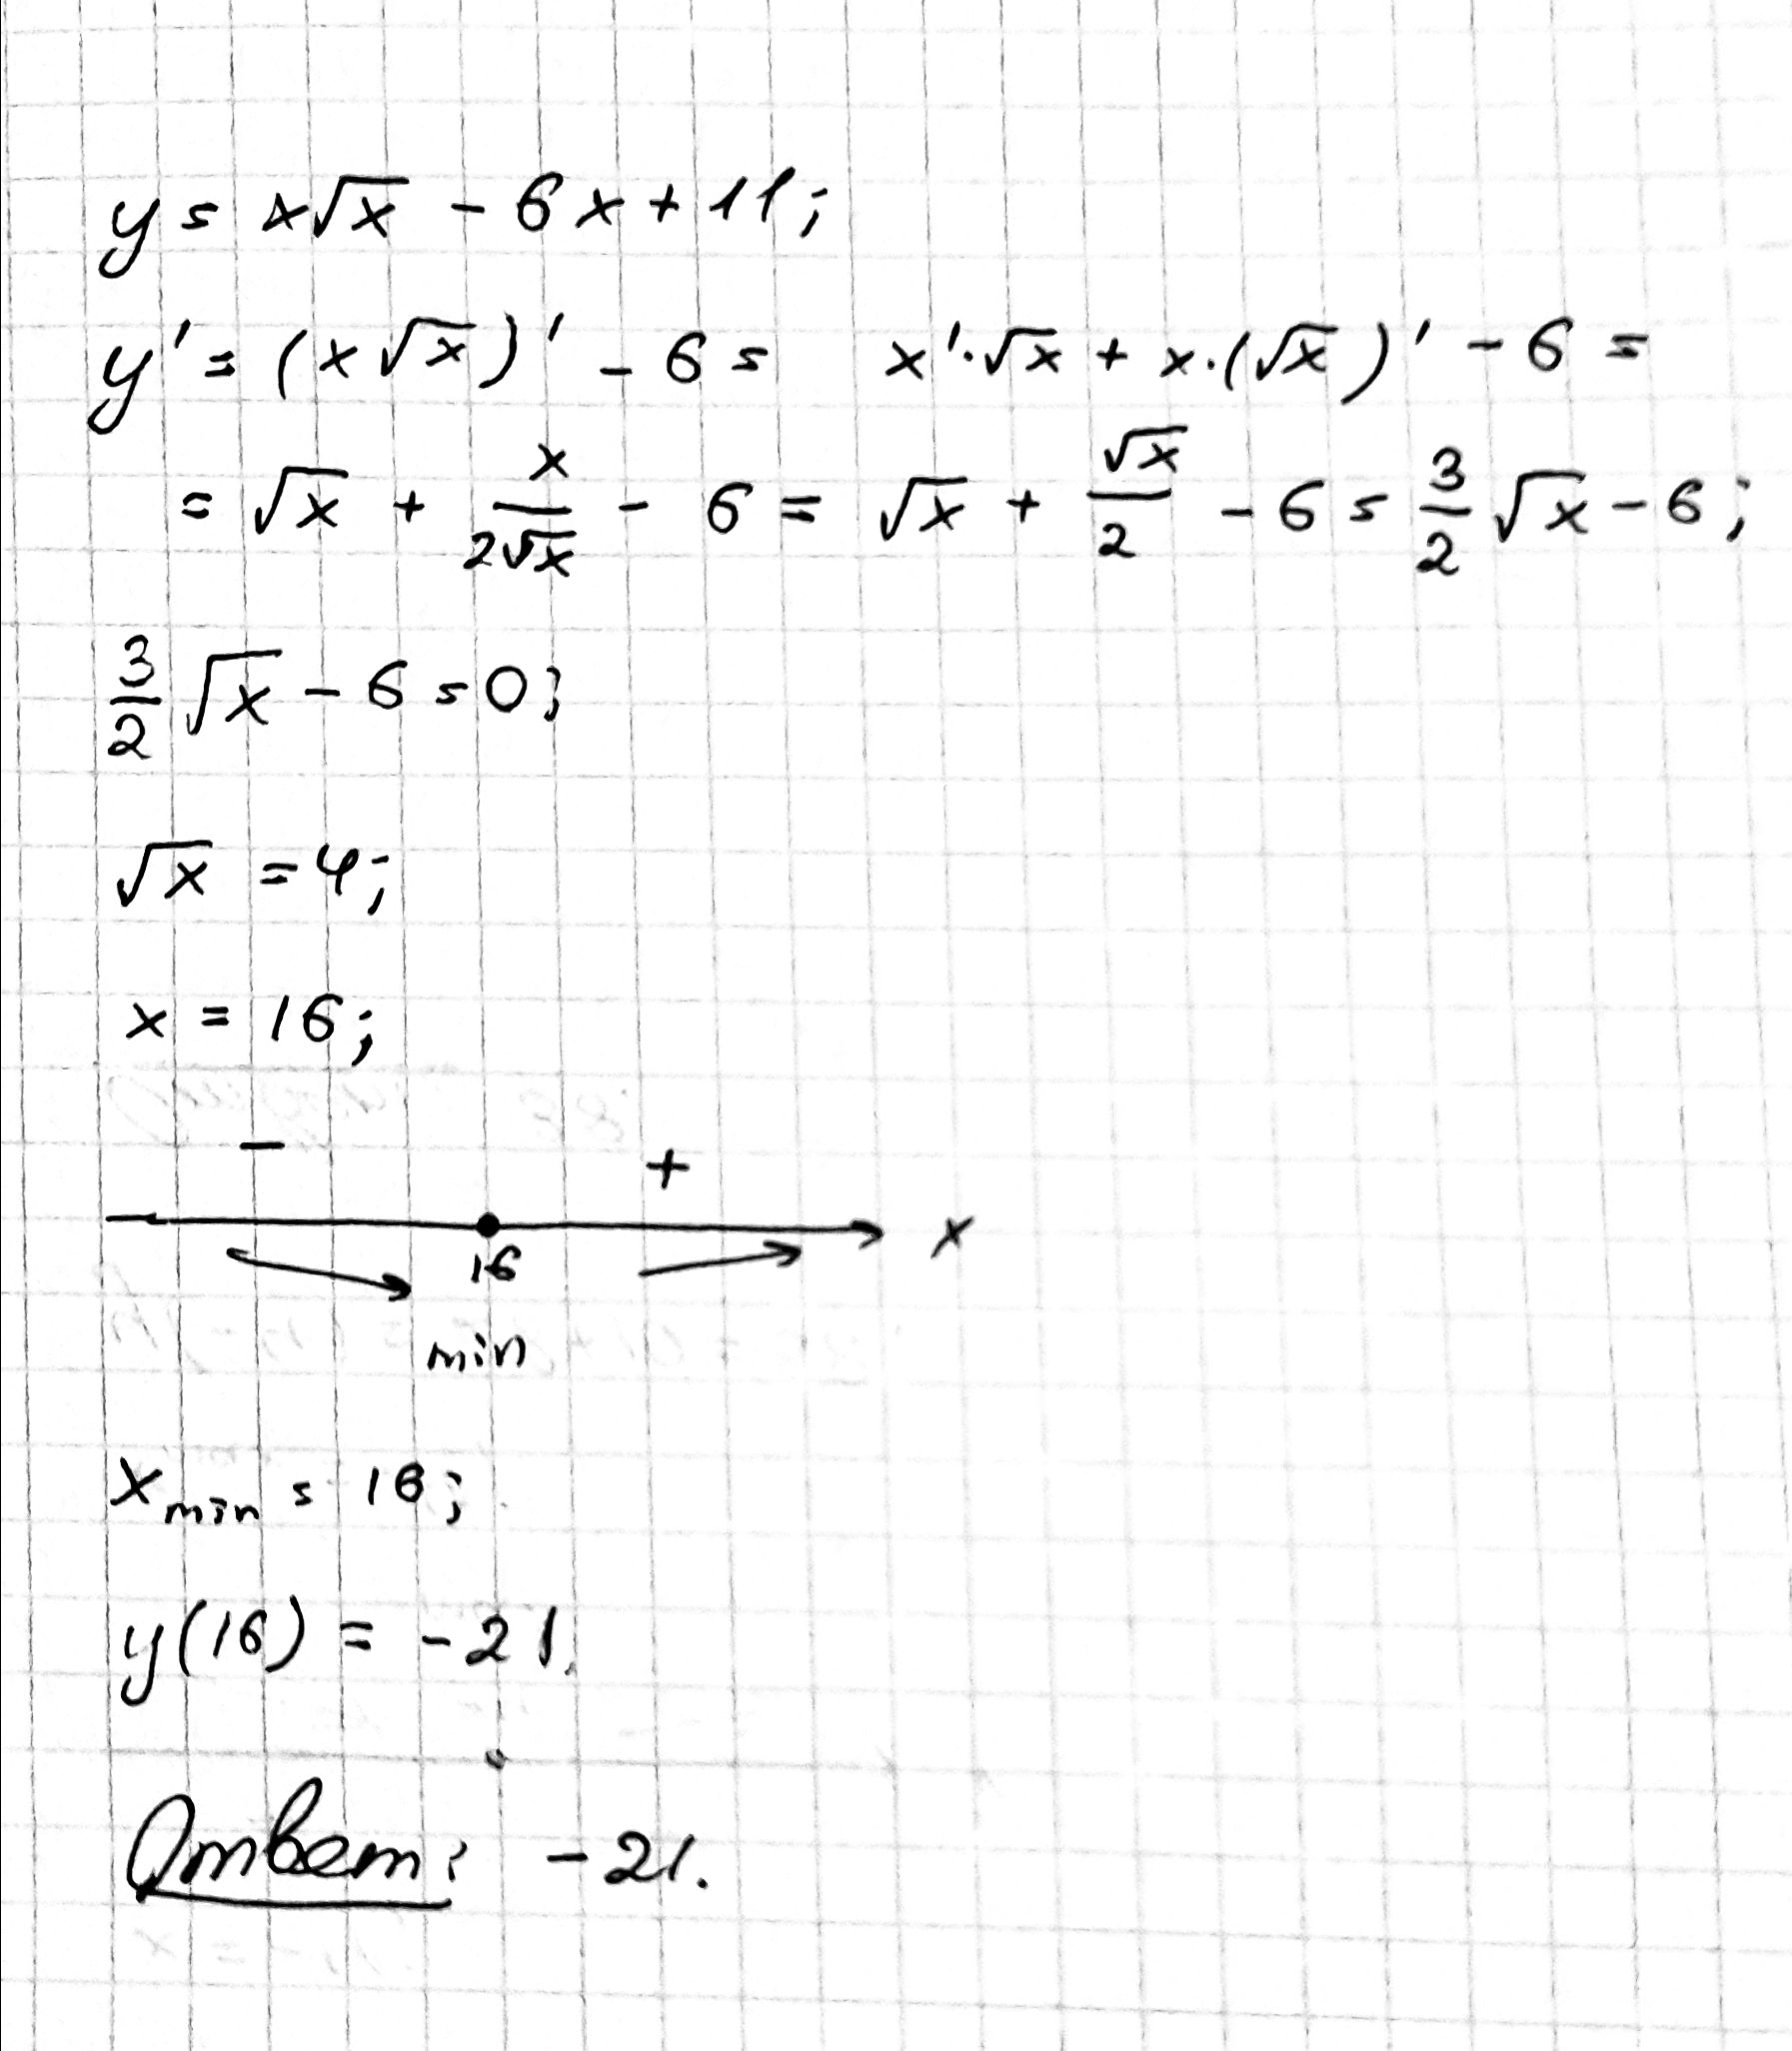 y = x√x - 6x + 11;
y' = (x√x)' - 6 = x'·√x + x·(√x)' - 6 =
= √x + x/(2√x) - 6 = √x + √x/2 - 6 = 3/2 √x - 6;
3/2 √x - 6 = 0;
√x = 4;
x = 16;
- +
16 x
min
x min = 16;
y(16) = -21.
Ответ: -21.